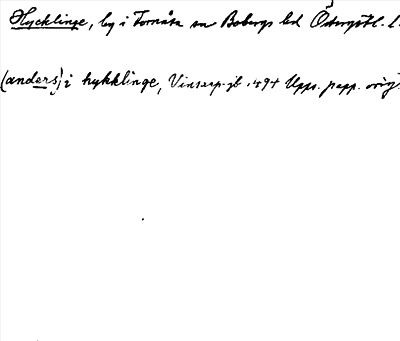 Hycklinge, by i Tornåsa sn Bobergs hd Östergötl. l.
(anders) i hykklinge, Vinserp.jb 1494 Upps. papp. orig.